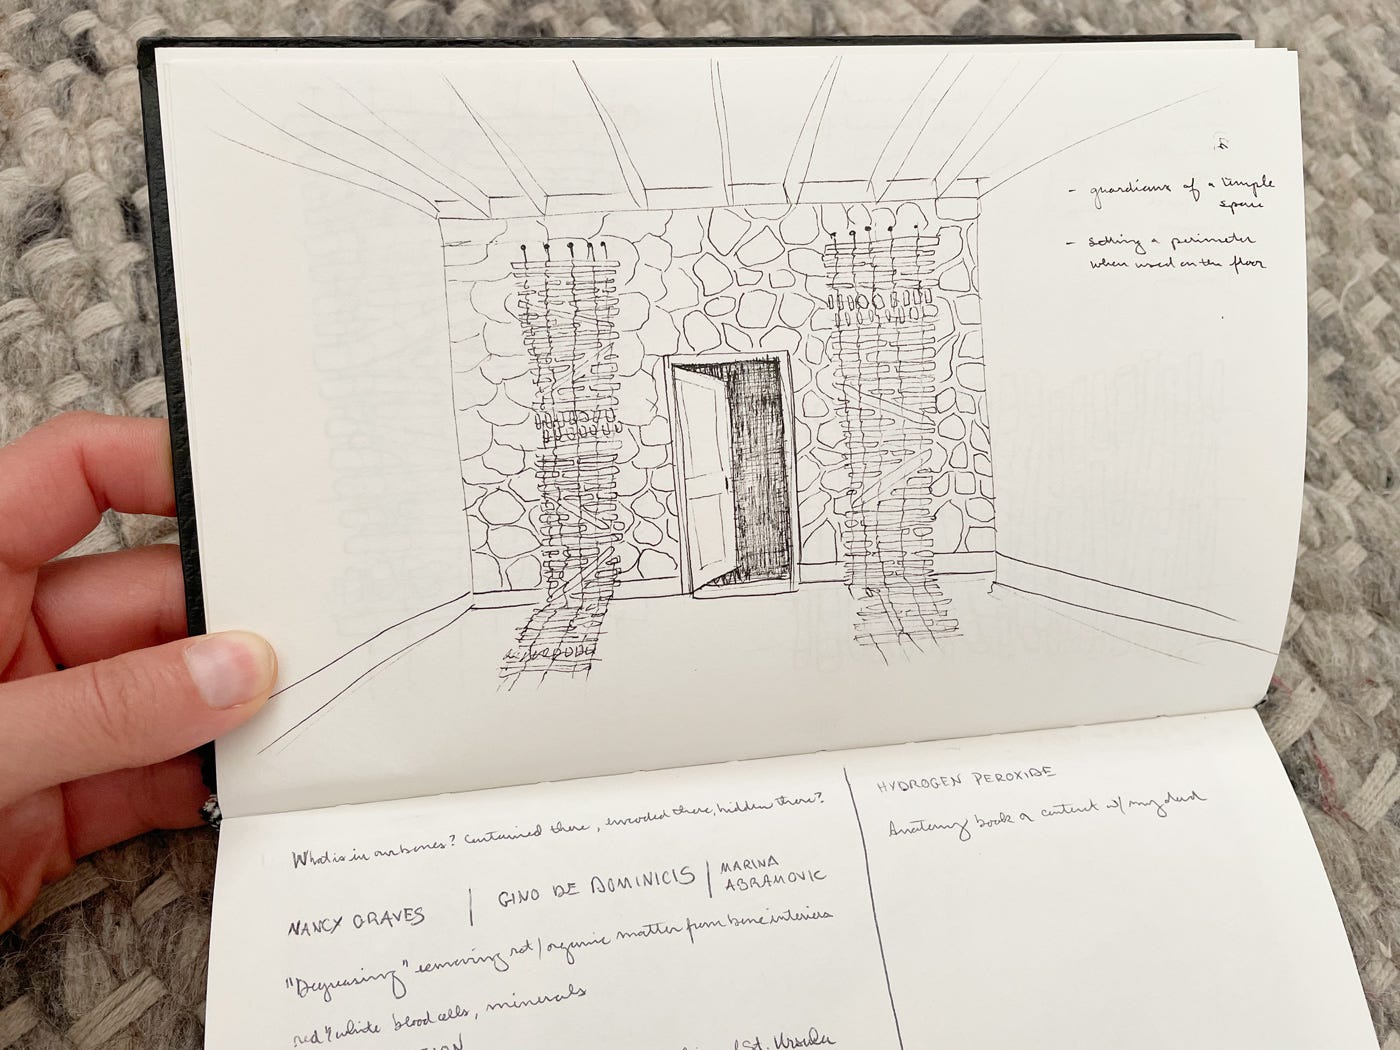 - guardians of a temple
space
- setting a perimeter
when used on the floor
What is in our bones? Contained there, encoded there, hidden there?
NANCY GRAVES | GINO DE DOMINICIS | MARINA
ABRAMOVIC
"Degreasing" removing rot/organic matter from bone interiors
red & white blood cells, minerals
St. Ursula
HYDROGEN PEROXIDE
Anatomy book or contact w/ my dad